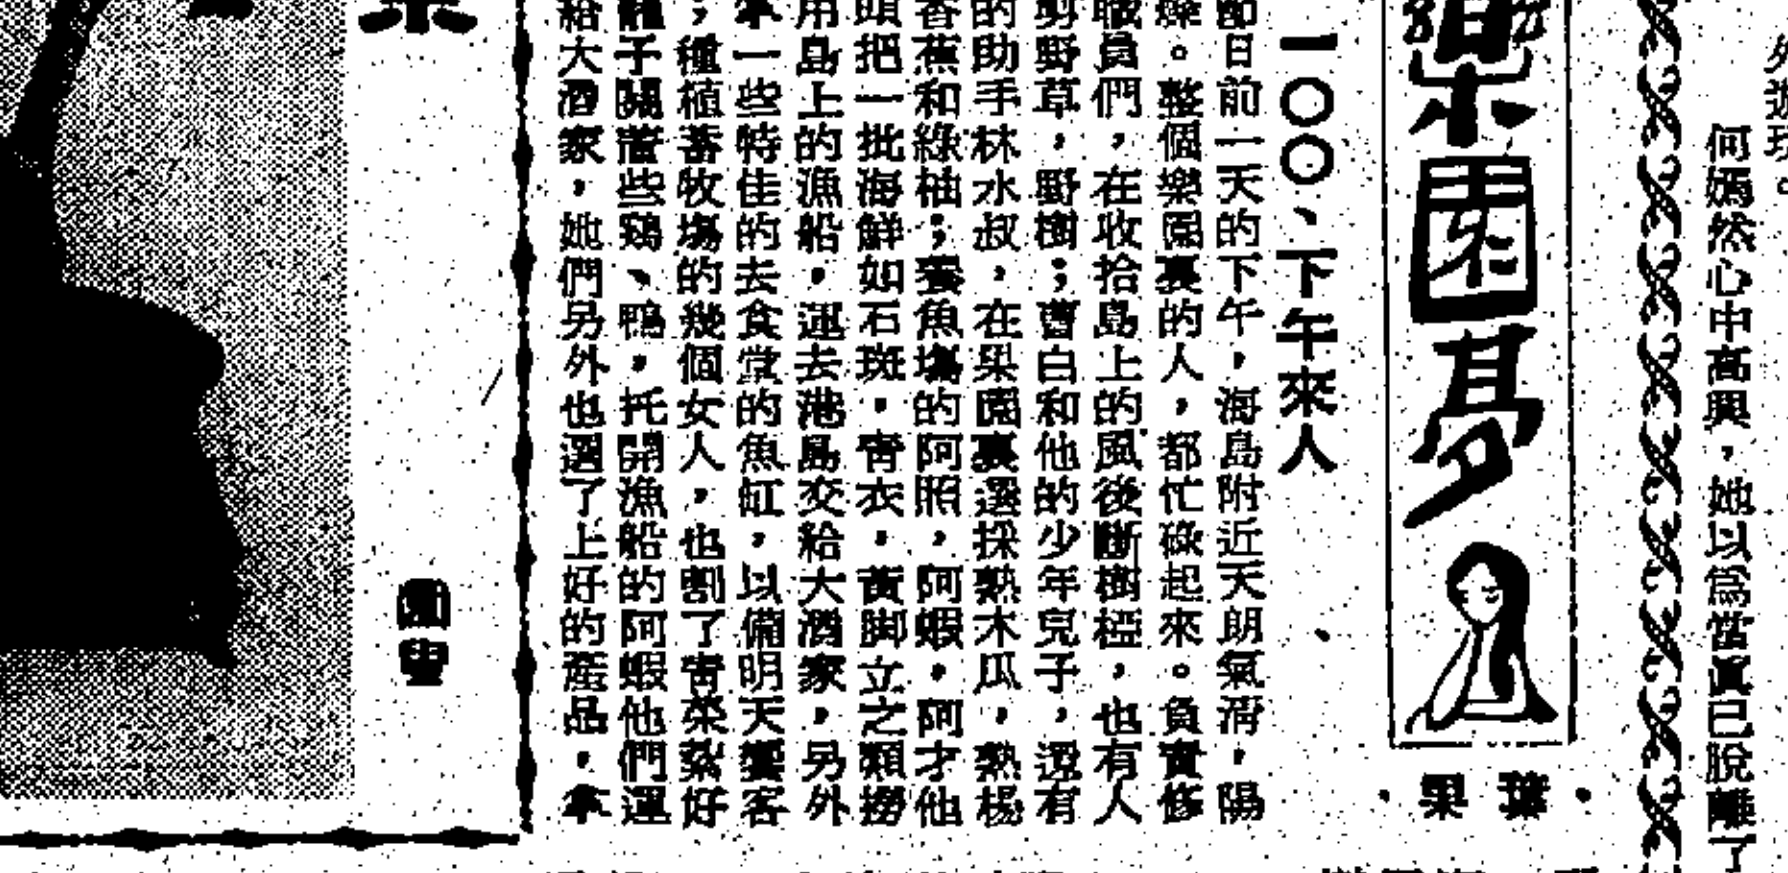 外遊玩。
何嫣然心中高興，她以為當真已脫離了
樂園夢
·葉果·
一〇〇、下午來人
節日前一天的下午，海島附近天朗氣清，陽
燥。整個樂園裏的人，都忙碌起來。負責修
職員們，在收拾島上的風後斷樹椏，也有人
剪野草，野樹；曹白和他的少年兒子，還有
的助手林水叔，在果園裏選採熟木瓜，熟楊
香蕉和綠柚；養魚塲的阿照，阿蝦，阿才他
頭把一批海鮮如石斑，青衣，黃脚立之類撈
用島上的漁船，運去港島交給大酒家，另外
拿一些特佳的去食堂的魚缸，以備明天饗客
；種植蕃牧塲的幾個女人，也割了青菜紮好
籠子關著些鷄、鴨，托開漁船的阿蝦他們運
給大酒家，她們另外也選了上好的產品，拿